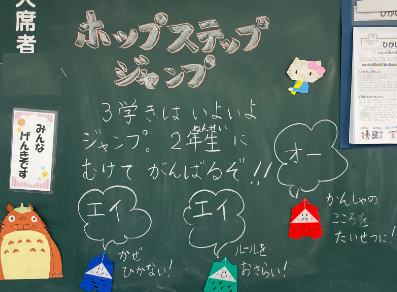 欠席者
みんな
げんきです
ホップステップ
ジャンプ
3学きは いよいよ
ジャンプ。2年生に
ねんせい
むけて がんばるぞ!!
エイ
エイ
オー
かぜ
ひかない!
ルールを
おさらい!
かんしゃの
こころを
たいせつに!